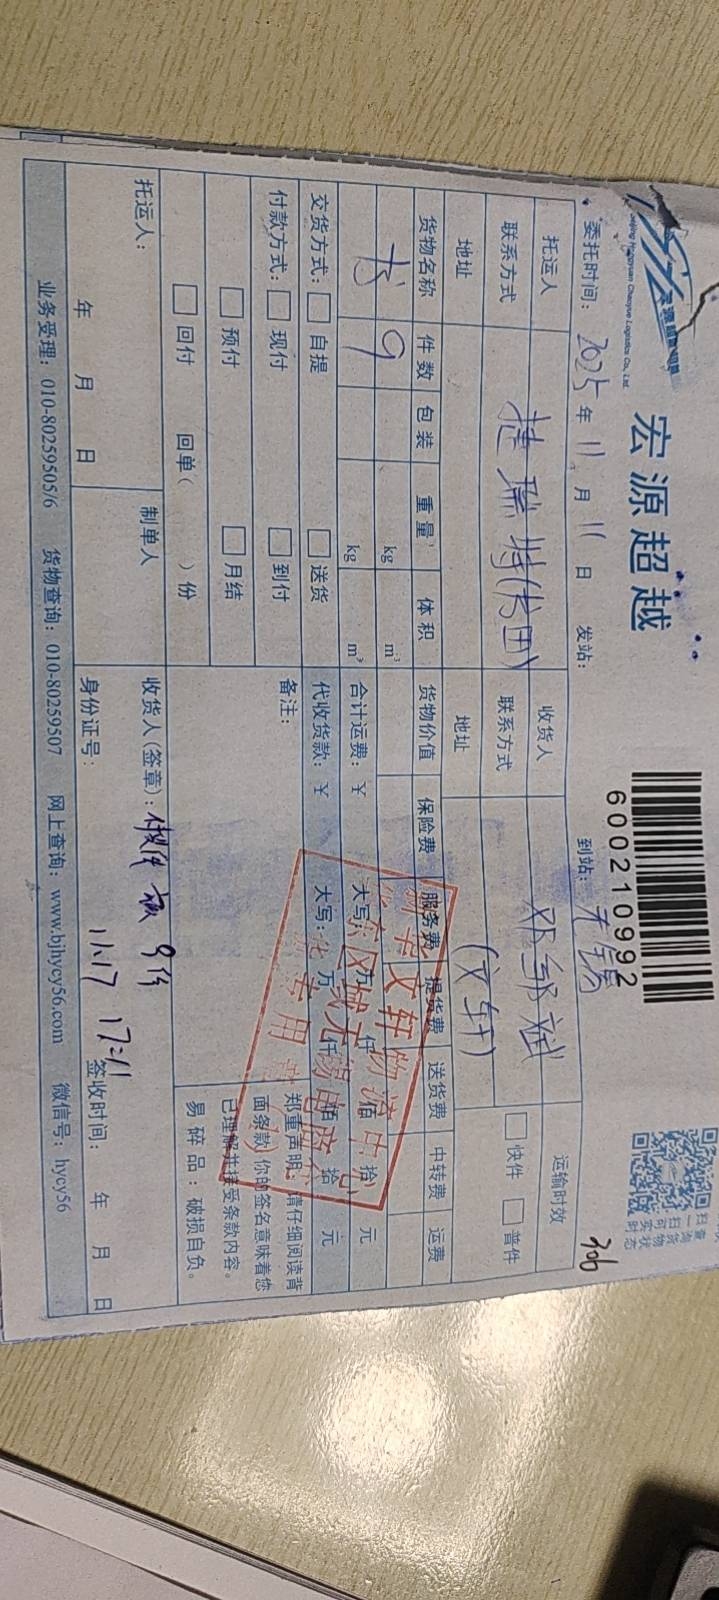 Beijing Hongyuan Chaoyue Logistics Co., Ltd.
宏源超越
600210992
扫一扫可实时
306
委托时间: 2025 年 11 月 11 日 发站: 到站: 无锡
托运人 捷瑞特(书团) 收货人 运输时效
联系方式 联系方式 快件 普件
地址 地址 (文轩)
货物名称 件数 包装 重量 体积 货物价值 保险费 服务费 提货费 送货费 中转费 运费
书 9 kg m³
kg m³ 合计运费: ¥ 大写: 万 仟 佰 拾 元
交货方式: 自提 送货 代收货款: ¥ 大写: 万 仟 佰 拾 元
付款方式: 现付 到付 备注:
预付 月结
回付 回单( )份
郑重声明: 请仔细阅读背
面条款, 你的签名意味着您
已理解并接受条款内容。
易碎品: 破损自负。
新华文轩物流中心
华东区域无锡电商仓
专用章
托运人: 制单人 收货人(签章): 9件
年 月 日 身份证号: 11.17 17:11 签收时间: 年 月 日
业务受理: 010-80259505/6 货物查询: 010-80259507 网上查询: www.bjhycy56.com 微信号: hycy56